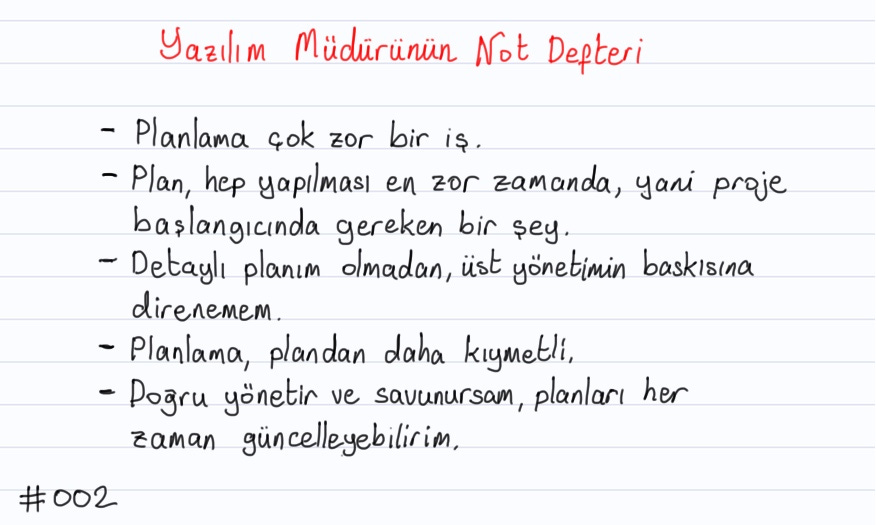 Yazılım Müdürünün Not Defteri
- Planlama çok zor bir iş.
- Plan, hep yapılması en zor zamanda, yani proje
başlangıcında gereken bir şey.
- Detaylı planım olmadan, üst yönetimin baskısına
direnemem.
- Planlama, plandan daha kıymetli.
- Doğru yönetir ve savunursam, planları her
zaman güncelleyebilirim.
#002